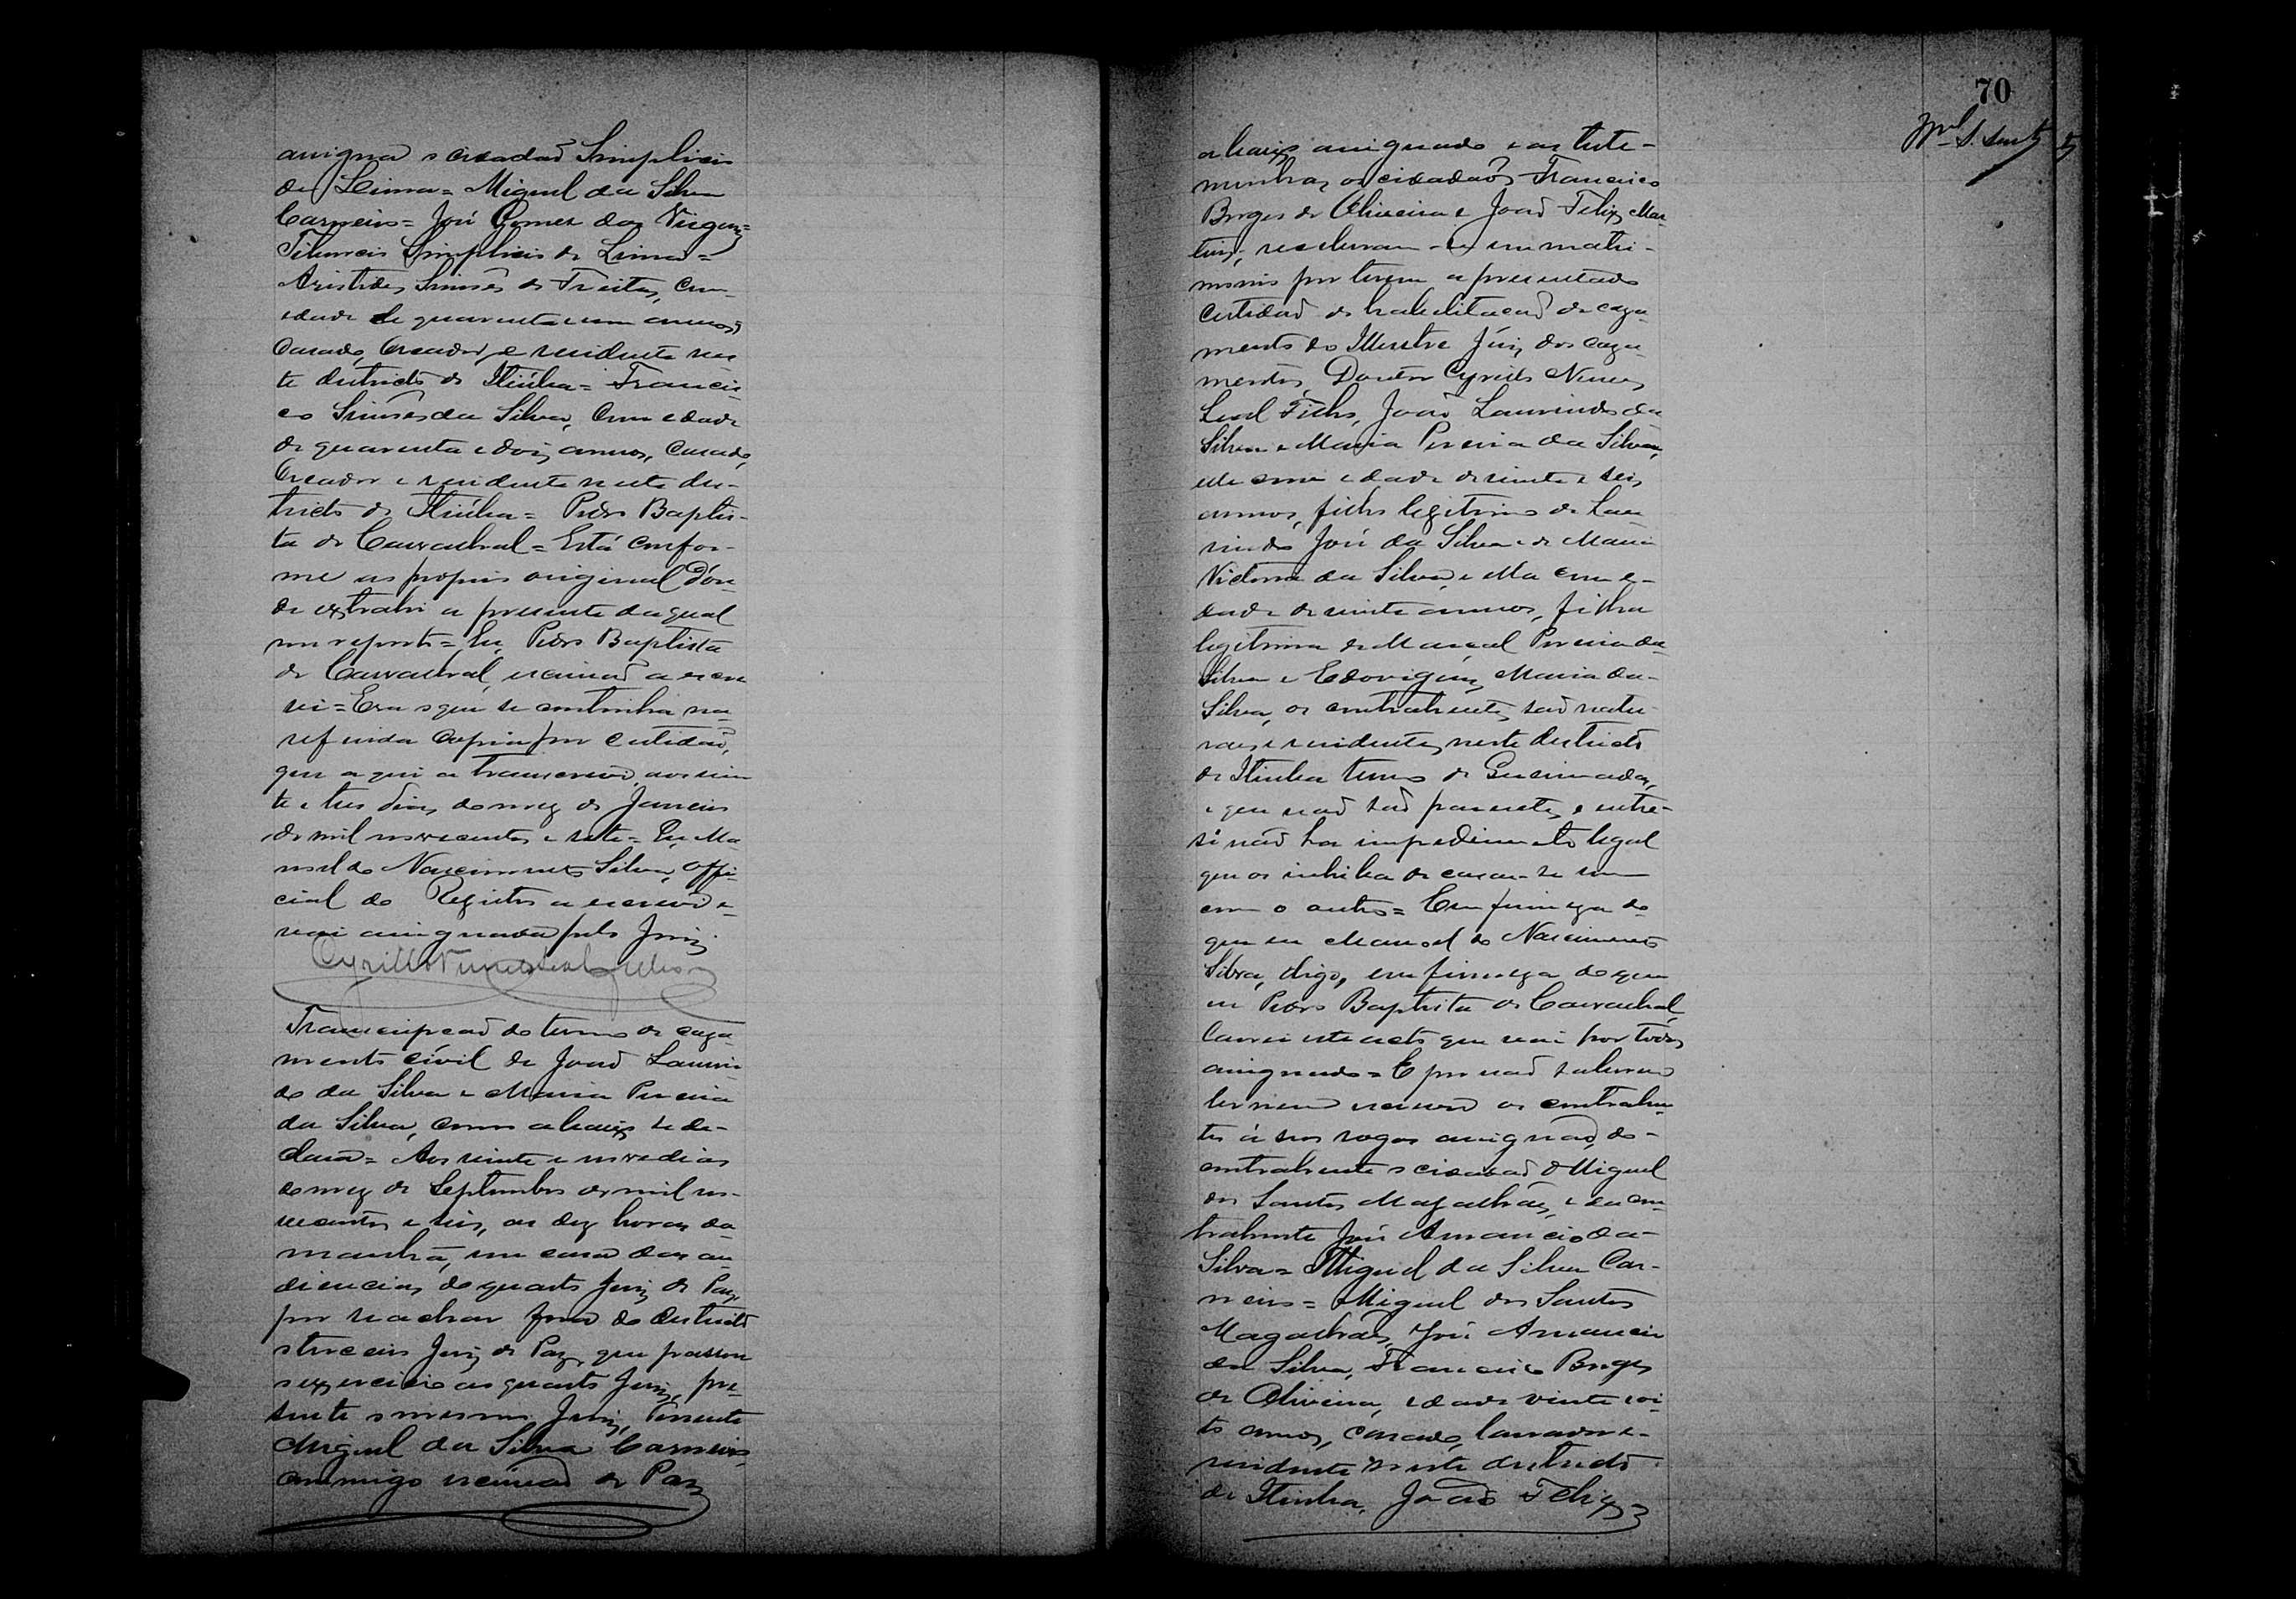 assigna o cidadão Simplicio
de Lima = Miguel da Silva
Carneiro = José Gomes dos Virgens =
Simplicio de Lima =
Aristides Simões de Freitas, com
edade de quarenta e um annos,
Casado, Creador, e residente nes-
te districto de Itiúba = Francis-
co Simões da Silva, Com edade
de quarenta e dois annos, Casado,
Creador e residente neste dis-
tricto de Itiúba = Pedro Baptis-
ta de Carvalhal = Está confor-
me ao proprio original d'on-
de extrahi a presente da qual
me reporto = Eu, Pedro Baptista
de Carvalhal, escrivão a escre
vi = Era o que se continha na
referida Copia por Certidão,
que aqui a transcrevo aos vin
te e tres dias do mez de Janeiro
de mil novecentos e sete = Eu Ma
noel do Nascimento Silva, Offi-
cial do Registro a escrevi e
vai assignada pelo Juiz.
Cyrillo Nunes Leal Filho
Transcripcão do termo de caza
mento civil de João Laurin
do da Silva e Maria Pereira
da Silva, como abaixo se de-
clara = Aos vinte e nove dias
do mez de Septembro de mil no-
vecentos e seis, as dez horas da
manhã, em casa das au
diencias do quarto Juiz de Paz,
por se achar fora do districto
o terceiro Juiz de Paz, que passou
o exercicio ao quarto Juiz, pre-
sente o mesmo Juiz, Tenente
Miguel da Silva Carneiro,
commigo escrivão de Paz
70
abaixo assignado e as teste-
munhas os cidadãos Francisco
Borges de Oliveira e João Felix Mar
tins, receberam-se em matri-
monio por terem apresentado
certidão de habilitacão de caza-
mento do Illustre Juiz dos caza-
mentos, Doutor Cyrillo Nunes
Leal Filho, João Laurindo da
Silva e Maria Pereira da Silva,
elle com edade de vinte e seis
annos, filho legitimo de Lau
rindo José da Silva e de Maria
Victoria da Silva, e ella com e-
dade de vinte annos, filha
legitima de Marcal Pereira da
Silva e Edovigens Maria da
Silva, os contrahentes são natu-
raes e residentes neste districto
de Itiuba termo de Queimadas,
e que não são parentes, e entre-
si não ha impedimento legal
que os inhiba de casar-se um
com o outro = Em firmeza do
que eu Manoel do Nascimento
Silva, digo, em firmeza do que
eu Pedro Baptista de Carvalhal,
lavrei este acto que vai por todos
assignado = E por não saberem
ler nem escrever os contrahen
tes á seus rogos assignão, do
contrahente o cidadão Miguel
dos Santos Magalhães, e da con
trahente José Amancio da
Silva = Miguel da Silva Car-
neiro = Miguel dos Santos
Magalhães, José Amancio
da Silva, Francisco Borges
de Oliveira, edade vinte e oi-
to annos, casado, lavrador e
residente neste districto
de Itiuba, João Felix